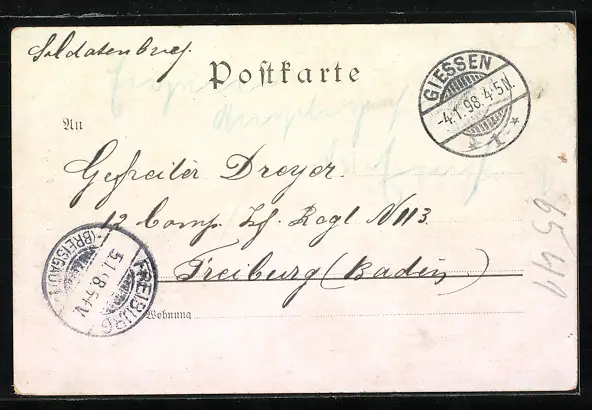 Soldatenbrief.
Postkarte
GIESSEN
-4.1.98.4-5N.
* 1 *
An
Gefreiter Dreyer.
12 Comp. Jf. Regt N 113.
Freiburg (Baden)
FREIBURG
(BREISGAU)
5.1.98.5-
Wohnung